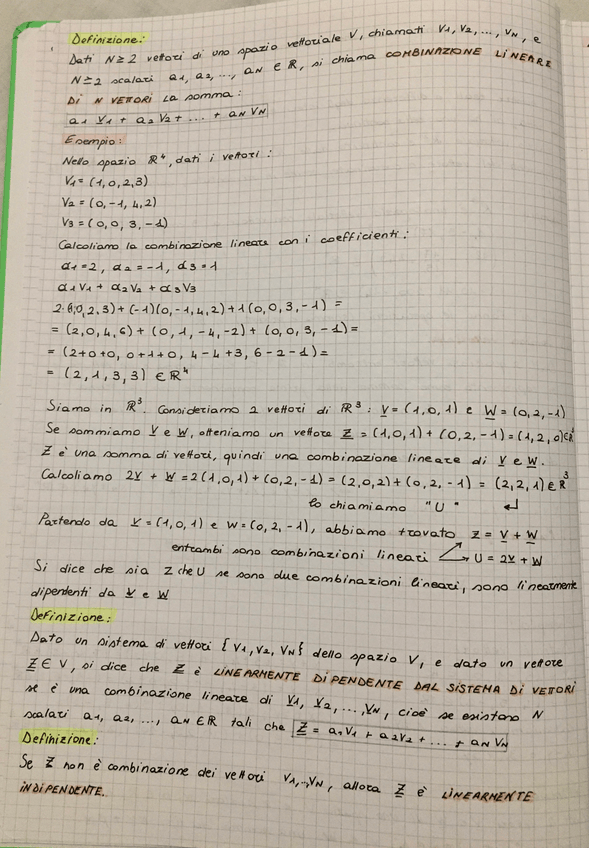 Definizione:
Dati N≥2 vettori di uno spazio vettoriale V, chiamati V1, V2, ..., VN, e
N≥2 scalari a1, a2, ..., aN ∈ ℝ, si chiama COMBINAZIONE LINEARE
DI N VETTORI la somma:
a1 V1 + a2 V2 + ... + aN VN
Esempio:
Nello spazio ℝ⁴, dati i vettori:
V1 = (1,0,2,3)
V2 = (0,-1,4,2)
V3 = (0,0,3,-1)
Calcoliamo la combinazione lineare con i coefficienti:
α1=2, α2=-1, α3=1
α1V1 + α2V2 + α3V3
2·(1,0,2,3)+(-1)(0,-1,4,2)+1(0,0,3,-1) =
= (2,0,4,6) + (0,1,-4,-2) + (0,0,3,-1) =
= (2+0+0, 0+1+0, 4-4+3, 6-2-1) =
= (2,1,3,3) ∈ ℝ⁴
Siamo in ℝ³. Consideriamo 2 vettori di ℝ³: V = (1,0,1) e W = (0,2,-1)
Se sommiamo V e W, otteniamo un vettore Z = (1,0,1) + (0,2,-1) = (1,2,0)∈ℝ³
Z è una somma di vettori, quindi una combinazione lineare di V e W.
Calcoliamo 2V + W = 2(1,0,1)+(0,2,-1) = (2,0,2)+(0,2,-1) = (2,2,1)∈ℝ³
lo chiamiamo "U" ↵
Partendo da V=(1,0,1) e W=(0,2,-1), abbiamo trovato Z = V + W
entrambi sono combinazioni lineari U = 2V + W
Si dice che sia Z che U se sono due combinazioni lineari, sono linearmente
dipendenti da V e W
Definizione:
Dato un sistema di vettori {V1, V2, VN} dello spazio V, e dato un vettore
Z ∈ V, si dice che Z è LINEARMENTE DIPENDENTE DAL SISTEMA DI VETTORI
se è una combinazione lineare di V1, V2, ..., VN, cioè se esistono N
scalari a1, a2, ..., aN ∈ ℝ tali che Z = a1V1 + a2V2 + ... + aN VN
Definizione:
Se Z non è combinazione dei vettori V1,..,VN, allora Z è LINEARMENTE
INDIPENDENTE.